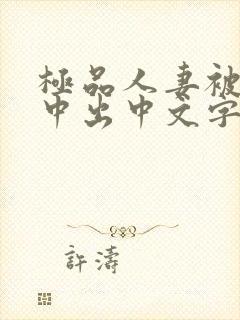 極品人妻被
中出中文字
許濤